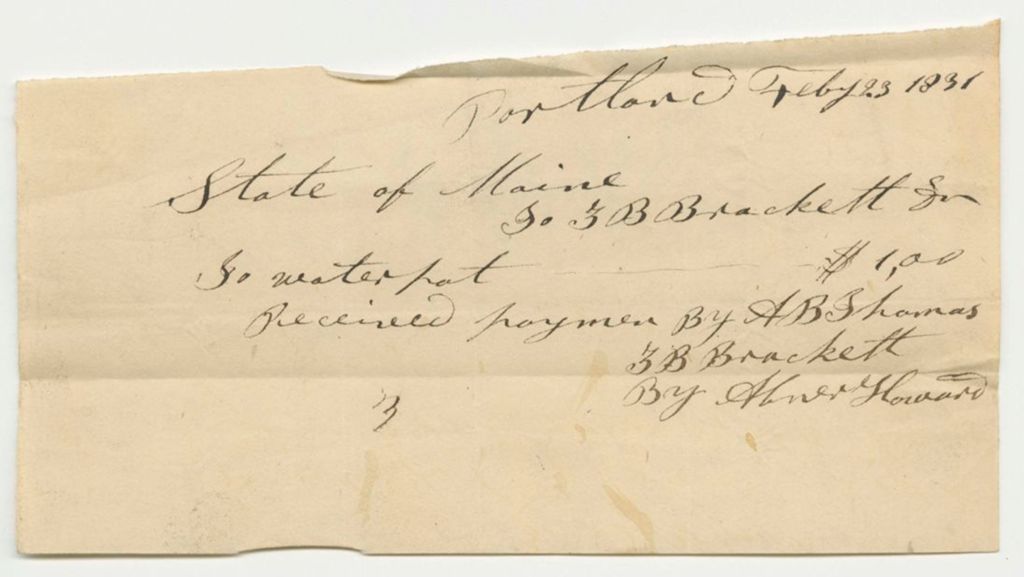 Portland Feby 23 1831
State of Maine
To Z B Brackett Dr
To water pot $ 1,00
Received paymen By A B Thomas
Z B Brackett
By Abner Howard
3